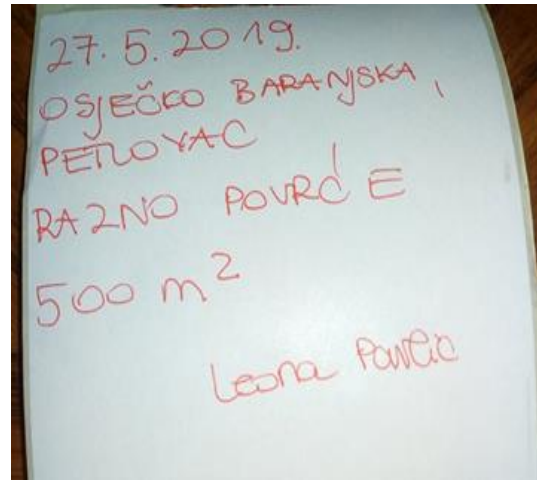 27.5.2019.
OSJEČKO BARANJSKA,
PETLOVAC
RAZNO POVRĆE
500 m²
Leona